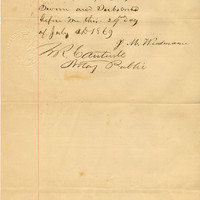 Sworn and Subscribed
before me this 29th day
of July AD 1869
J. M. Widman
W R Cantwell
Notary Public